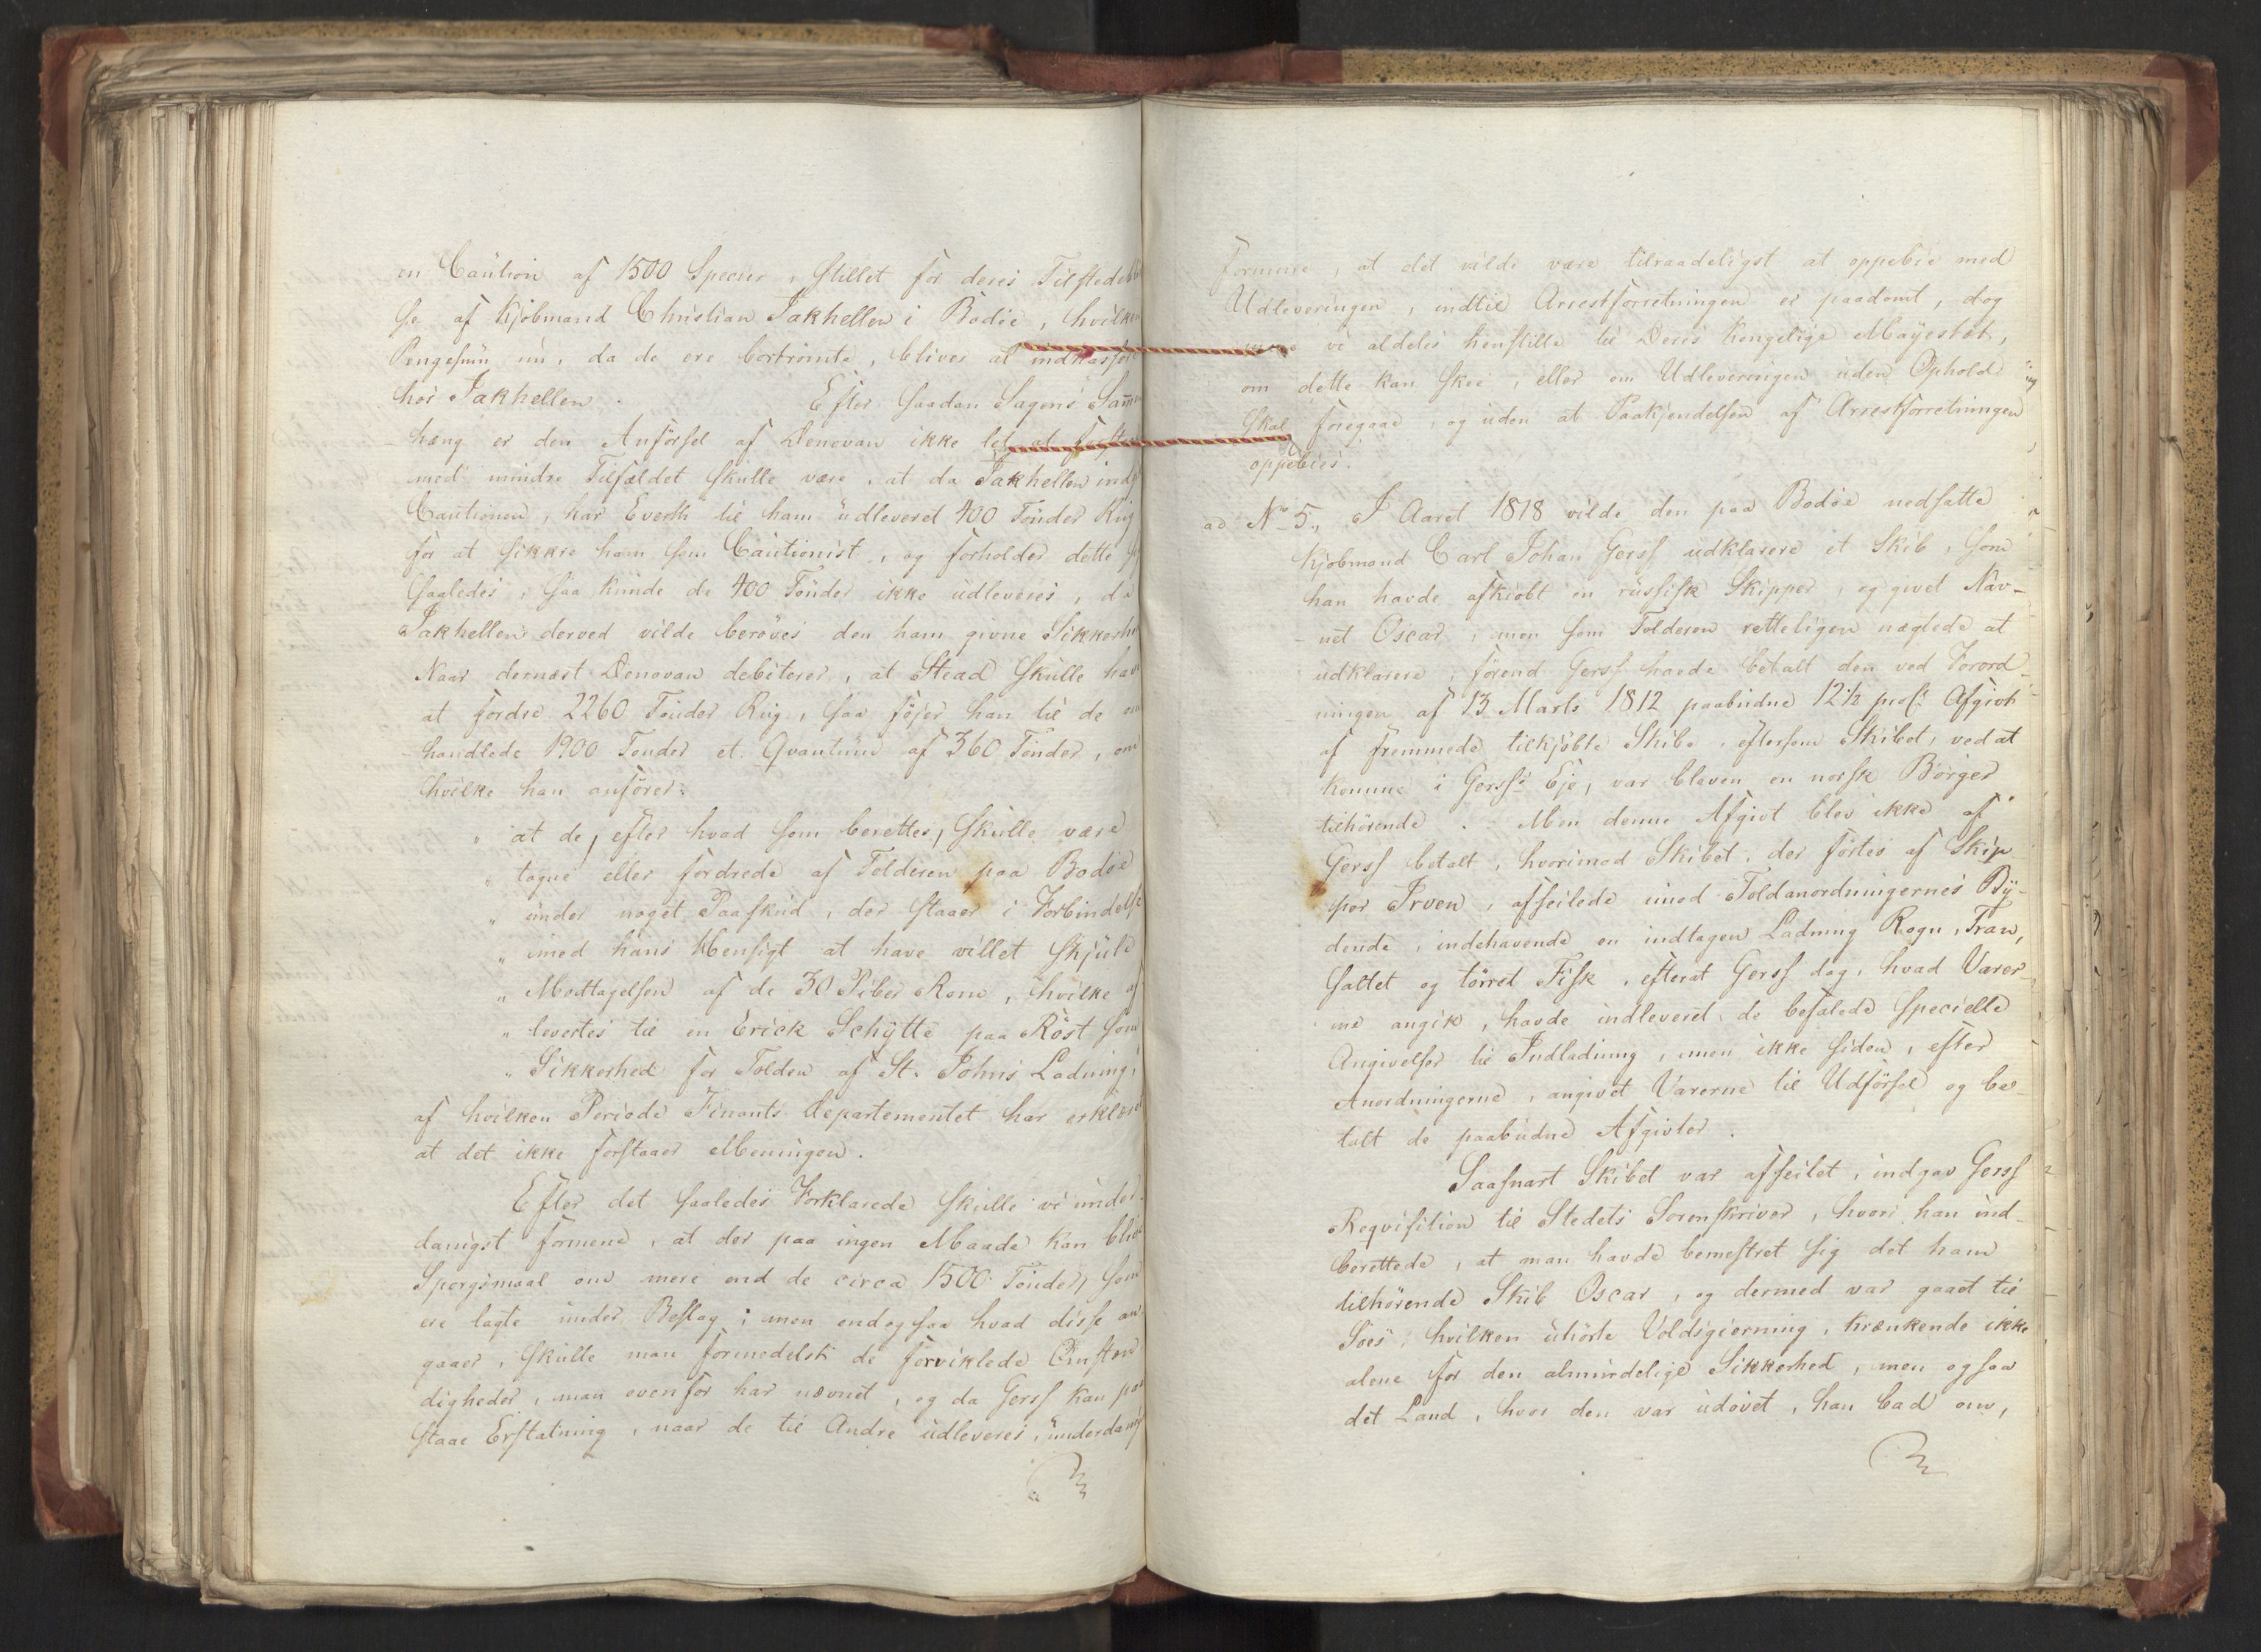 en Caution af 1500 Species, stillet for deres Tilstedebli
se af Kjøbmand Christian Jakhellen i Bodøe, hvilken
Pengesum nu, da de ere bortrømte, bliver at indkasser
hos Jakhellen. Efter saadan Sagens Sammen
hæng er den Anførsel af Denovan ikke let at forstaa
med mindre Tilfældet skulle være, at da Jakhellen indg
Cautionen, har Everth til ham udleveret 400 Tønder Rug
for at sikkre ham som Cautionist, og forholder dette sig
saaledes, saa kunde de 400 Tønder ikke udleveres, da
Jakhellen derved vilde berøves den ham givne Sikkerhed
Naar dernæst Denovan debiterer, at Stead skulle have
at fordre 2260 Tønder Rug, saa føjer han til de om
handlede 1900 Tønder et Qvantum af 360 Tønder, om
hvilke han anfører:
" at de, efter hvad som berettes, skulle være
" tagne eller fordrede af Tolderen paa Bodøe
" under noget Paaskud, der staaer i Forbindelse
" med hans Hensigt at have villet skjule
" Modtagelsen af de 30 Piber Rom, hvilke af
" levertes til en Erick Schytte paa Røst som
" Sikkerhed for Tolden af St. Johns Ladning,
af hvilken Periode Finants Departementet har erklæret
at det ikke forstaaer Meningen.
Efter det saaledes Forklarede skulle vi under
danigst formene, at der paa ingen Maade kan blive
Spørgsmaal om mere end de circa 1500 Tønder, som
ere lagte under Beslag; men endogsaa hvad disse an
gaaer, skulle man formedelst de forviklede Omstæn
digheder, man ovenfor har nævnet, og da Gerss kan paa
staae Erstatning, naar de til Andre udleveres, underdanig
formene, at det vilde være tilraadeligst at oppebie med
Udleveringen, indtil Arrestforretningen er paadømt, dog
vi aldeles henstille til Deres Kongelige Mayestæt,
om dette kan skee, eller om Udleveringen uden Ophold
skal foregaae, og uden at Paakjendelsen af Arrestforretningen
oppebies.
ad No 5., I Aaret 1818 vilde den paa Bodøe nedsatte
Kjøbmand Carl Johan Gerss udklarere et Skib, som
han havde afkiøbt en russisk Skipper, og givet Nav-
net Oscar, men som Tolderen retteligen nægtede at
udklarere, førend Gerss havde betalt den ved Forord-
ningen af 13 Marts 1812 paabudne 12½ proC. Afgivt
af fremmede tilkjøbte Skibe, eftersom Skibet, ved at
komme i Gerss's Eje, var bleven en norsk Borger
tilhørende. Men denne Afgivt blev ikke af
Gerss betalt, hvorimod Skibet, der førtes af Skip
per Irven, afseilede imod Toldanordningernes By-
dende, indehavende en indtagen Ladning Rogn, Tran,
saltet og tørret Fisk, efterat Gerss dog, hvad Varer-
ne angik, havde indleveret de befalede specielle
Angivelser til Indladning, men ikke siden, efter
Anordningerne, angivet Varerne til Udførsel og be-
talt de paabudne Afgivter.
Saasnart Skibet var afseilet, indgav Gerss
Reqvisition til Stedets Sorenskriver, hvori han ind-
berettede, at man havde bemestret sig det ham
tilhørende Skib Oscar, og dermed var gaaet til
Søes, hvilken uhørte Voldsgierning, krænkende ikke
alene for den almindelige Sikkerhed, men ogsaa
det Land, hvor den var udøvet, han bad om,